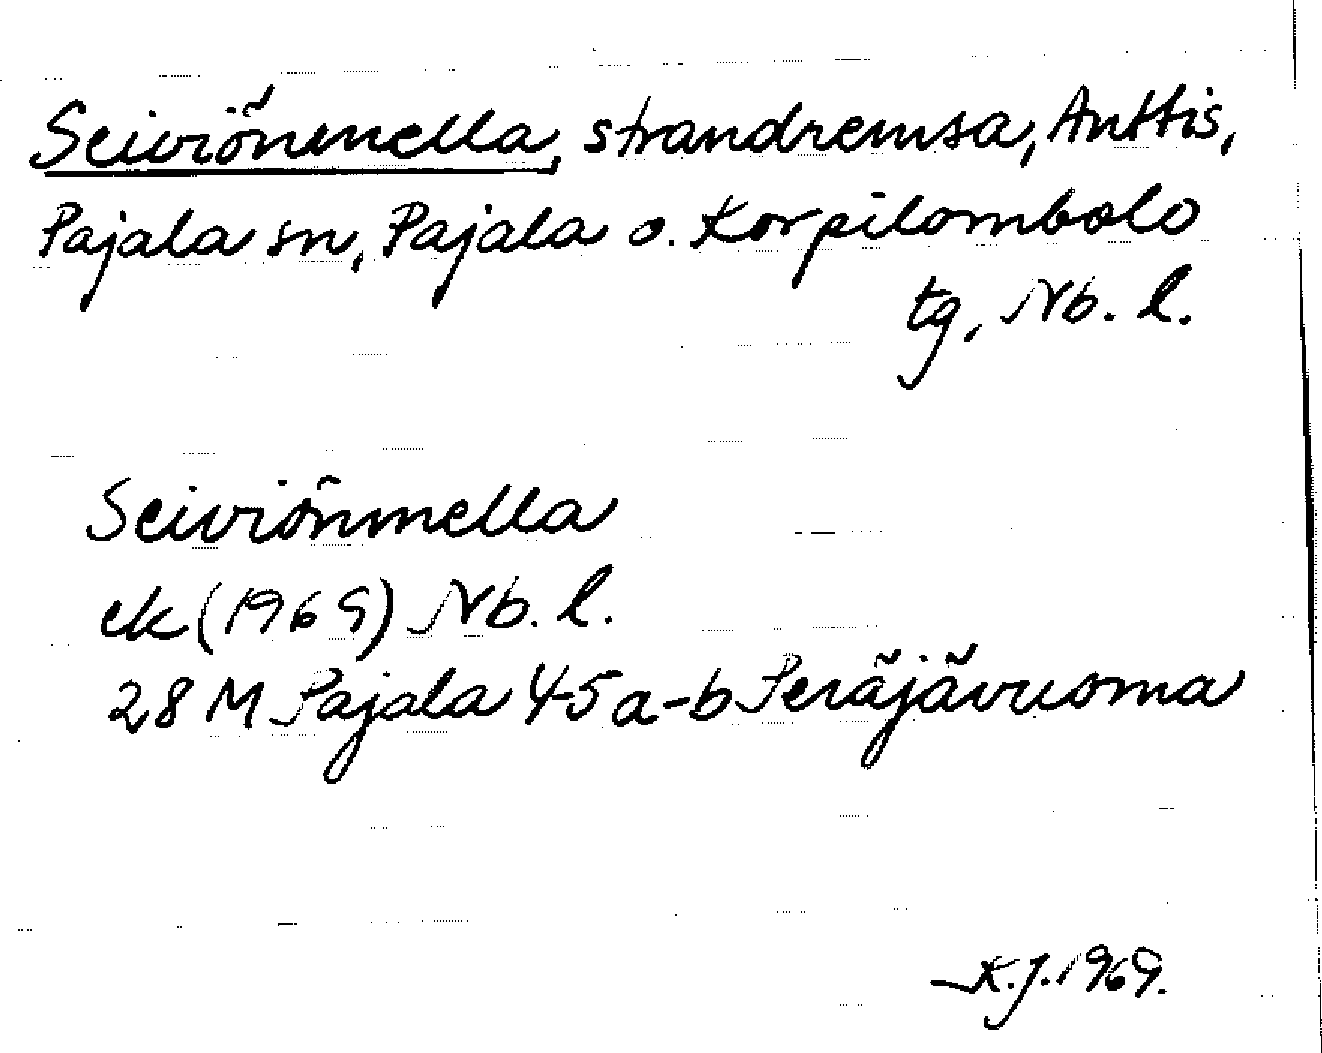 Seiviönmella, strandremsa, Anttis,
Pajala sn, Pajala o. Korpilombolo
tg, Nb. l.
Seiviönmella
ek (1969) Nb. l.
28 M Pajala 45 a-b Peräjävuoma
K.J. 1969.